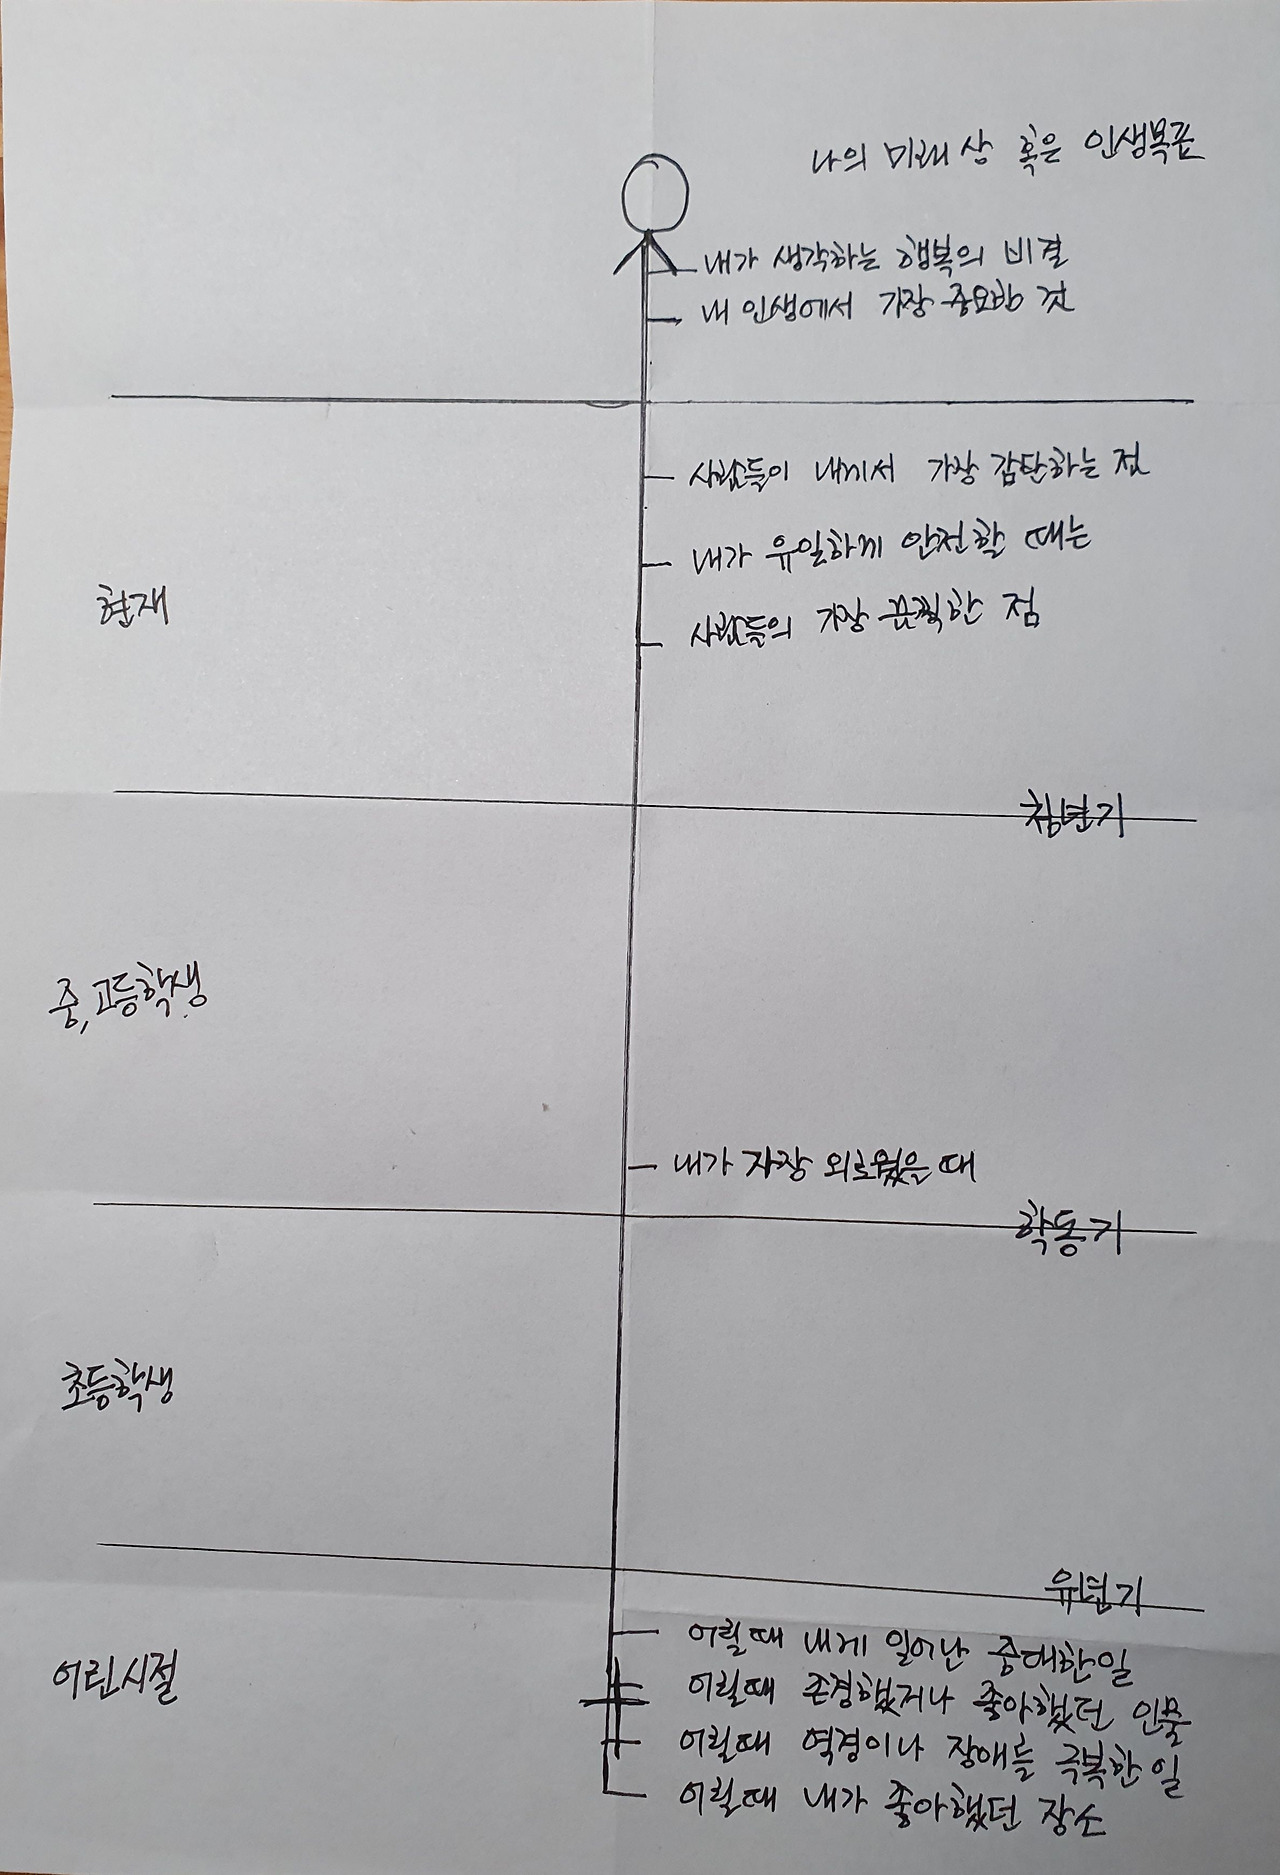 나의 미래상 혹은 인생목표
내가 생각하는 행복의 비결
내 인생에서 가장 중요한 것
사람들이 내게서 가장 감탄하는 점
내가 유일하게 안전할 때는
현재
사람들의 가장 끔찍한 점
청년기
중,고등학생
내가 자장 외로웠을 때
학동기
초등학생
유년기
어릴때 내게 일어난 중대한일
어린시절
어릴때 존경했거나 좋아했던 인물
어릴때 역경이나 장애를 극복한 일
어릴때 내가 좋아했던 장소